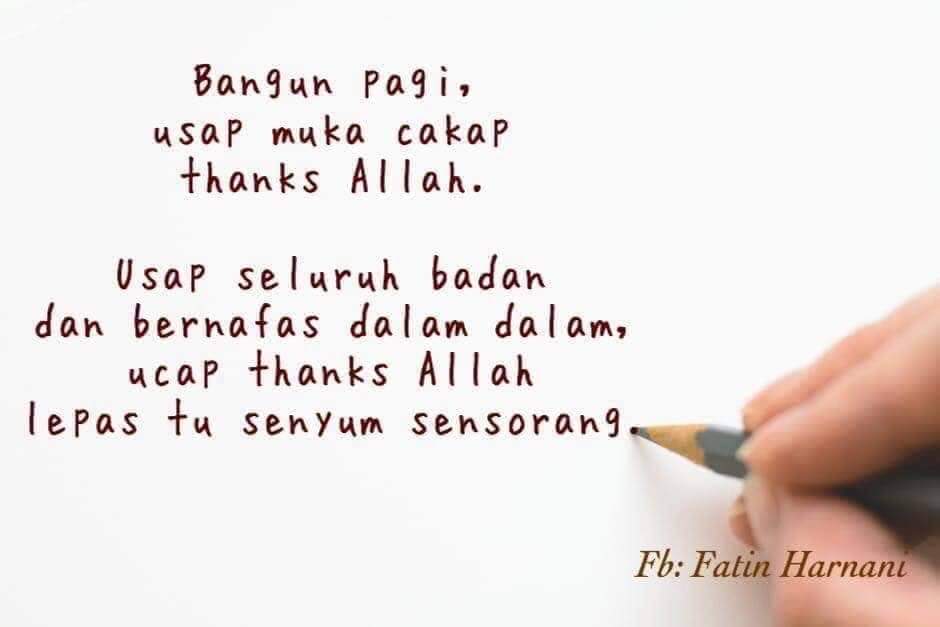 Bangun pagi,
usap muka cakap
thanks Allah.
Usap seluruh badan
dan bernafas dalam dalam,
ucap thanks Allah
lepas tu senyum sensorang.
Fb: Fatin Harnani